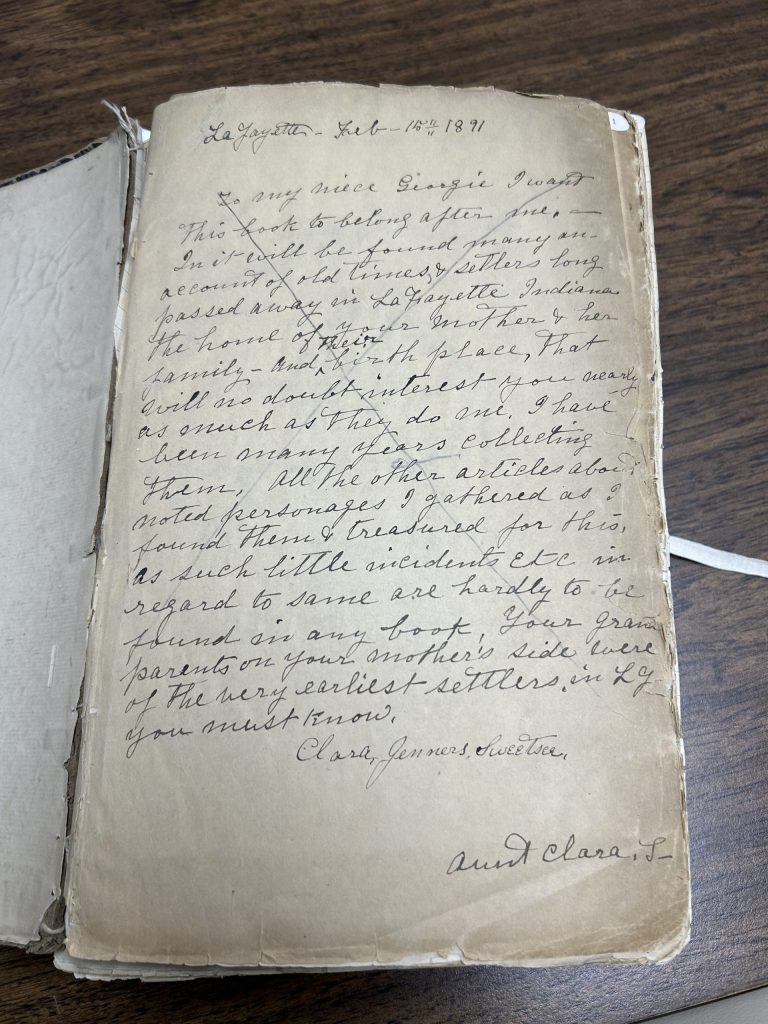 LaFayette - Feb - 15" 1891
1
To my niece Georgie I want
This book to belong after me. —
In it will be found many an-
account of old times, & settlers long
passed away in LaFayette Indiana
the home of your mother & her
family - and their birth place, That
will no doubt interest you nearly
as much as they do me. I have
been many years collecting
them. All the other articles about
noted personages I gathered as I
found them & treasured for this,
as such little incidents etc in
regard to same are hardly to be
found in any book. Your grand
parents on your mother's side were
of the very earliest settlers, in LF-
you must know.
Clara, Jenners, Sweetser.
Aunt Clara. S-